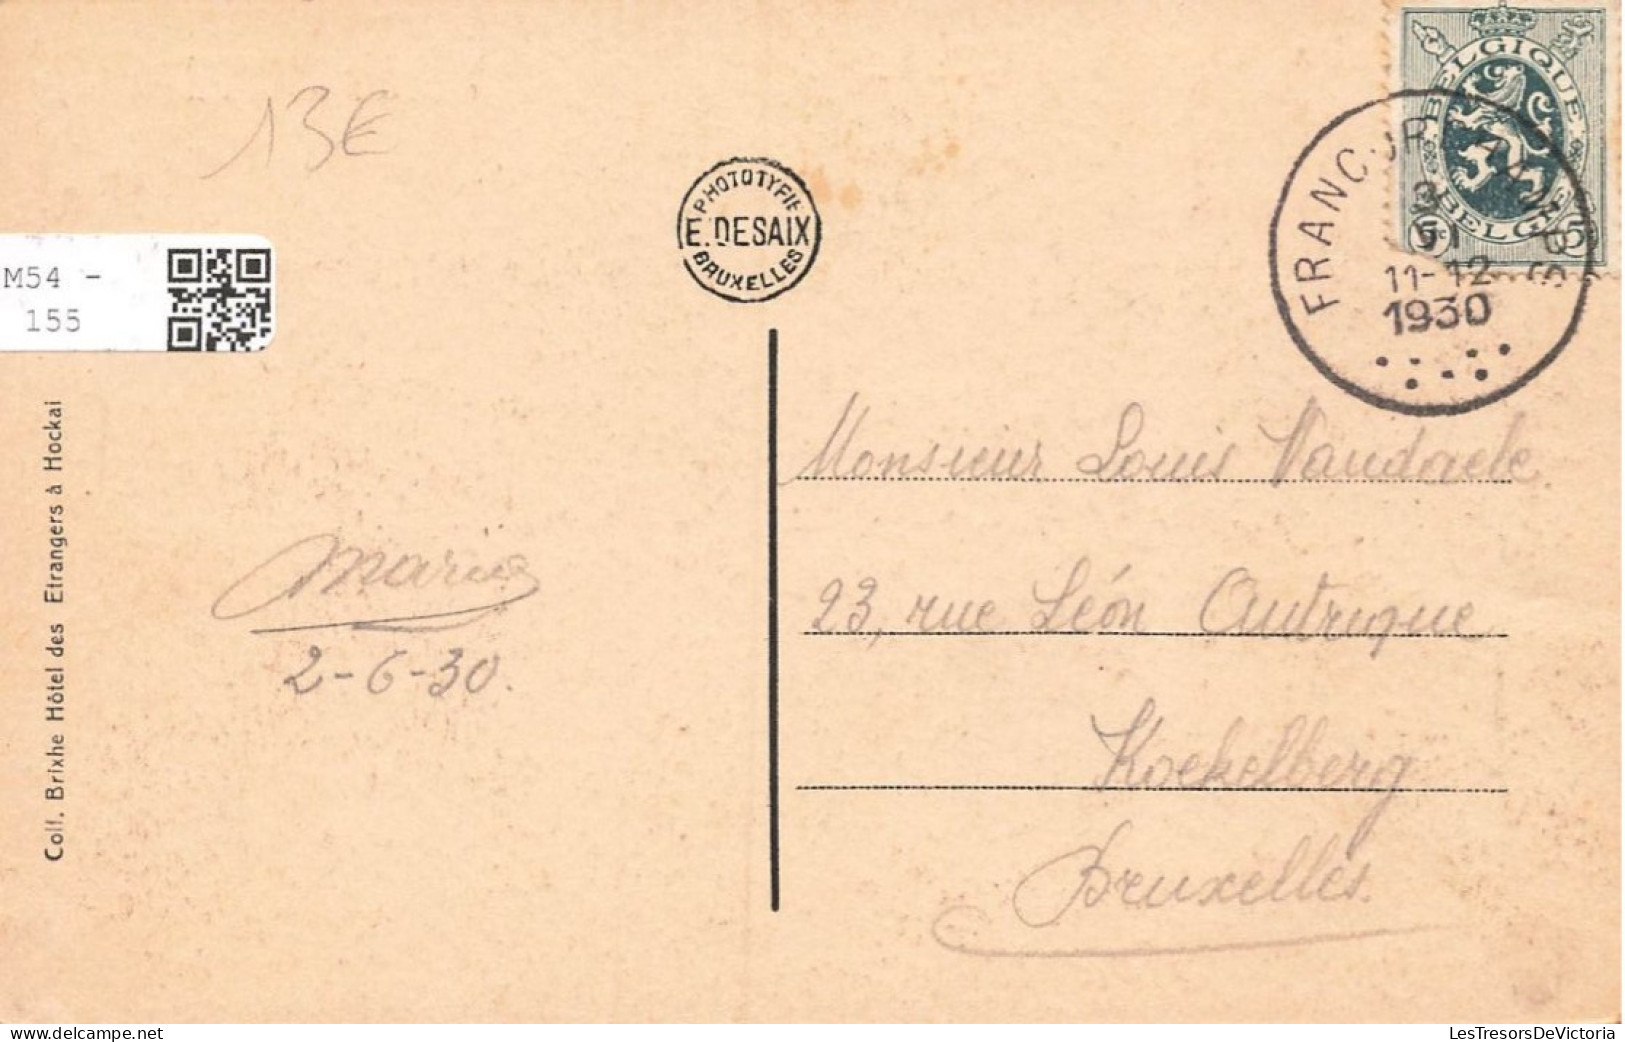 13€
PHOTOTYPIE
E. DESAIX
BRUXELLES
BELGIQUE
BELGIE
5c 5c
FRANCOR
11-12
1930
M54 -
155
Coll. Brixhe Hôtel des Etrangers à Hockai
Marie
2-6-30.
Monsieur Louis Vandaele
23, rue Léon Autrique
Koekelberg
Bruxelles.
delcampe.net
LesTresorsDeVictoria